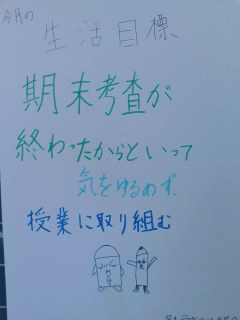 今月の
生活目標
期末考査が
終わったからといって
気をゆるめず
授業に取り組む